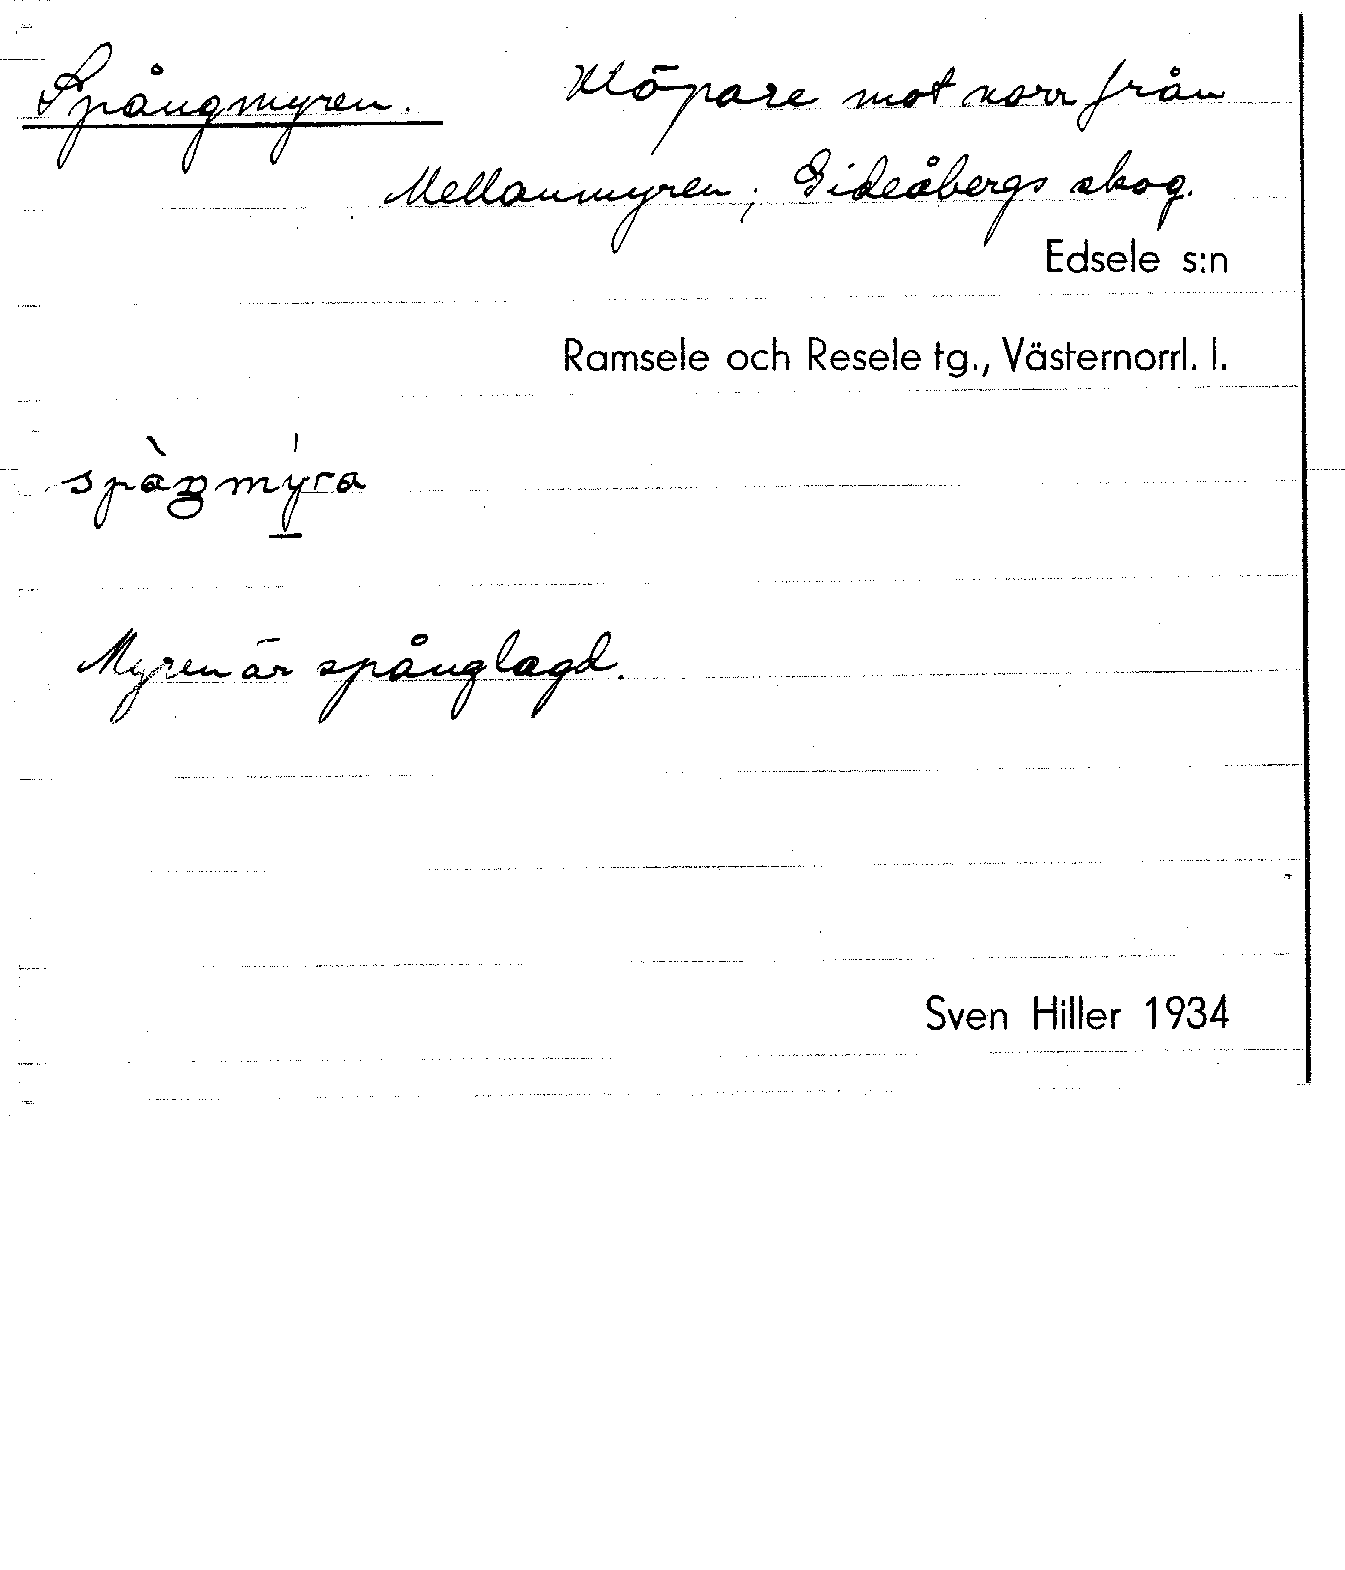 Spångmyren. Utlöpare mot norr från
Mellanmyren, Gideåbergs skog.
Edsele s:n
Ramsele och Resele tg., Västernorrl. l.
Myren är spånglagd.
Sven Hiller 1934